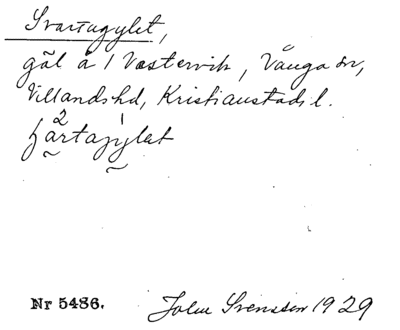 Svartagylet,
göl å 1 Västervik, Vånga sn,
Villands hd, Kristianstads l.
Nr 5486. John Svensson 1929